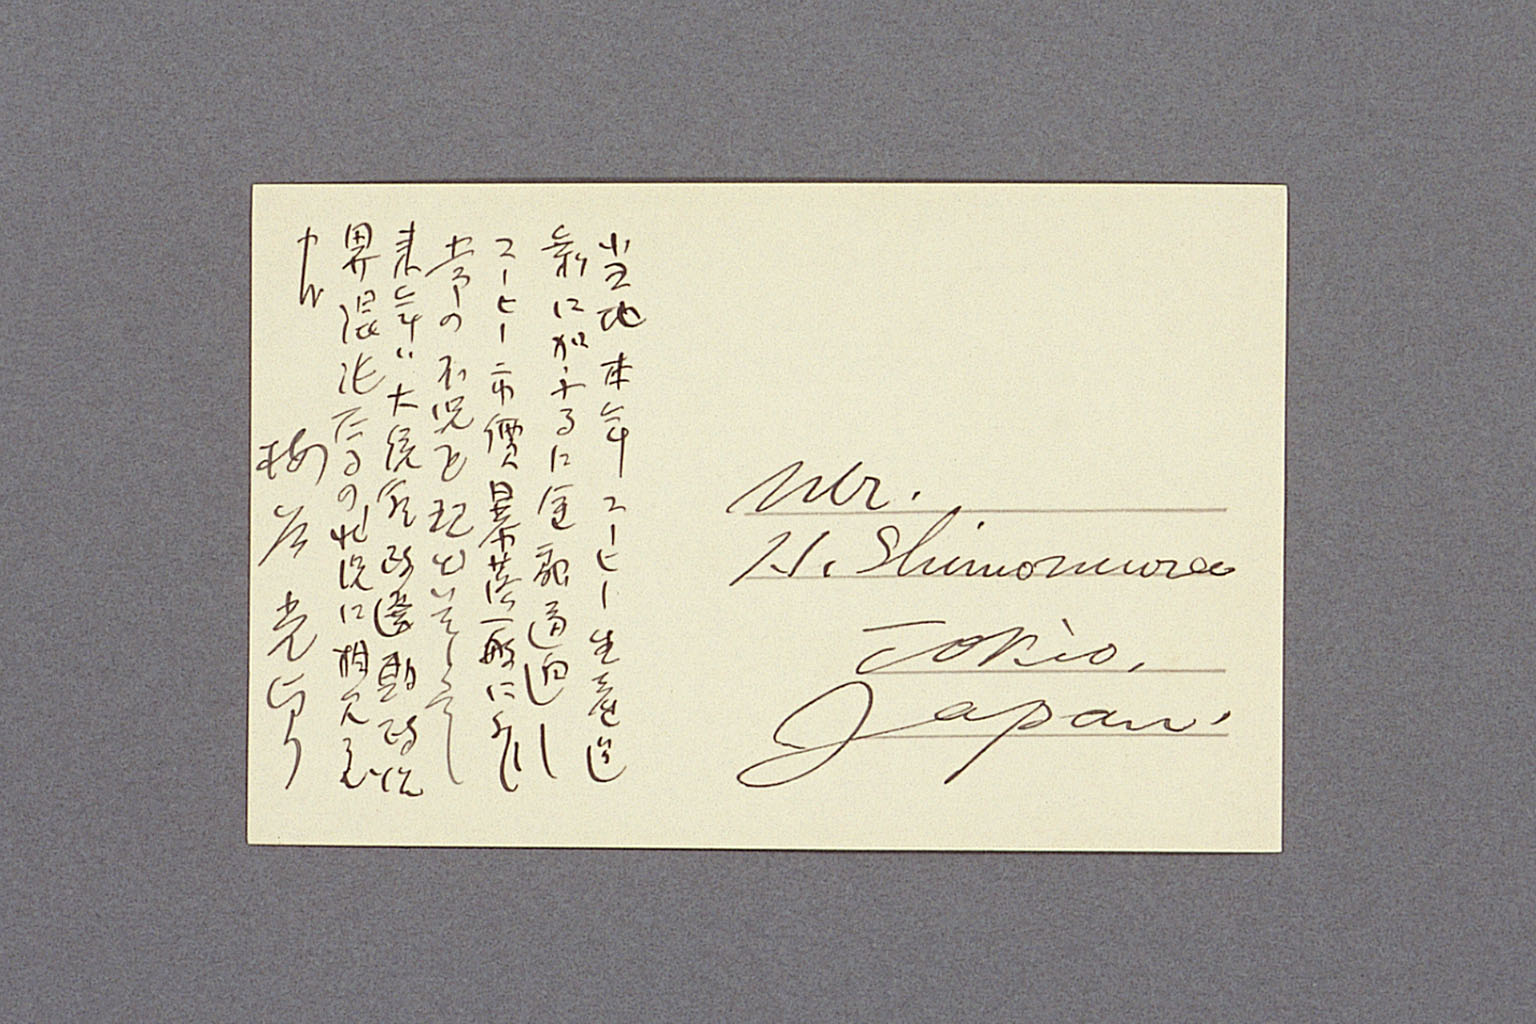 当地本年コーヒー生産過
剰に加ふるに金融逼迫し
コーヒー市價暴落一般に
の不況を現出
来年は大統領改選期政
界混沌たるの状況に相見え
申候
梅谷光貞
Mr.
H. Shimomura
Tokio,
Japan.